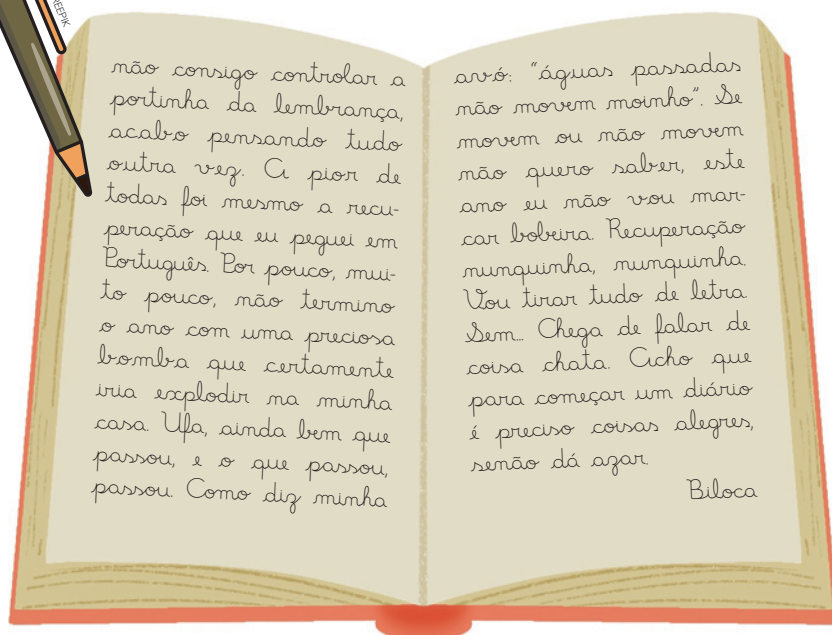 não consigo controlar a
portinha da lembrança,
acabo pensando tudo
outra vez. A pior de
todas foi mesmo a recu-
peração que eu peguei em
Português. Por pouco, mui-
to pouco, não termino
o ano com uma preciosa
bomba que certamente
iria explodir na minha
casa. Ufa, ainda bem que
passou, e o que passou,
passou. Como diz minha
avó: "águas passadas
não movem moinho". Se
movem ou não movem
não quero saber, este
ano eu não vou mar-
car bobeira. Recuperação
nunquinha, nunquinha.
Vou tirar tudo de letra.
Sem... Chega de falar de
coisa chata. Acho que
para começar um diário
é preciso coisas alegres,
senão dá azar.
Biloca